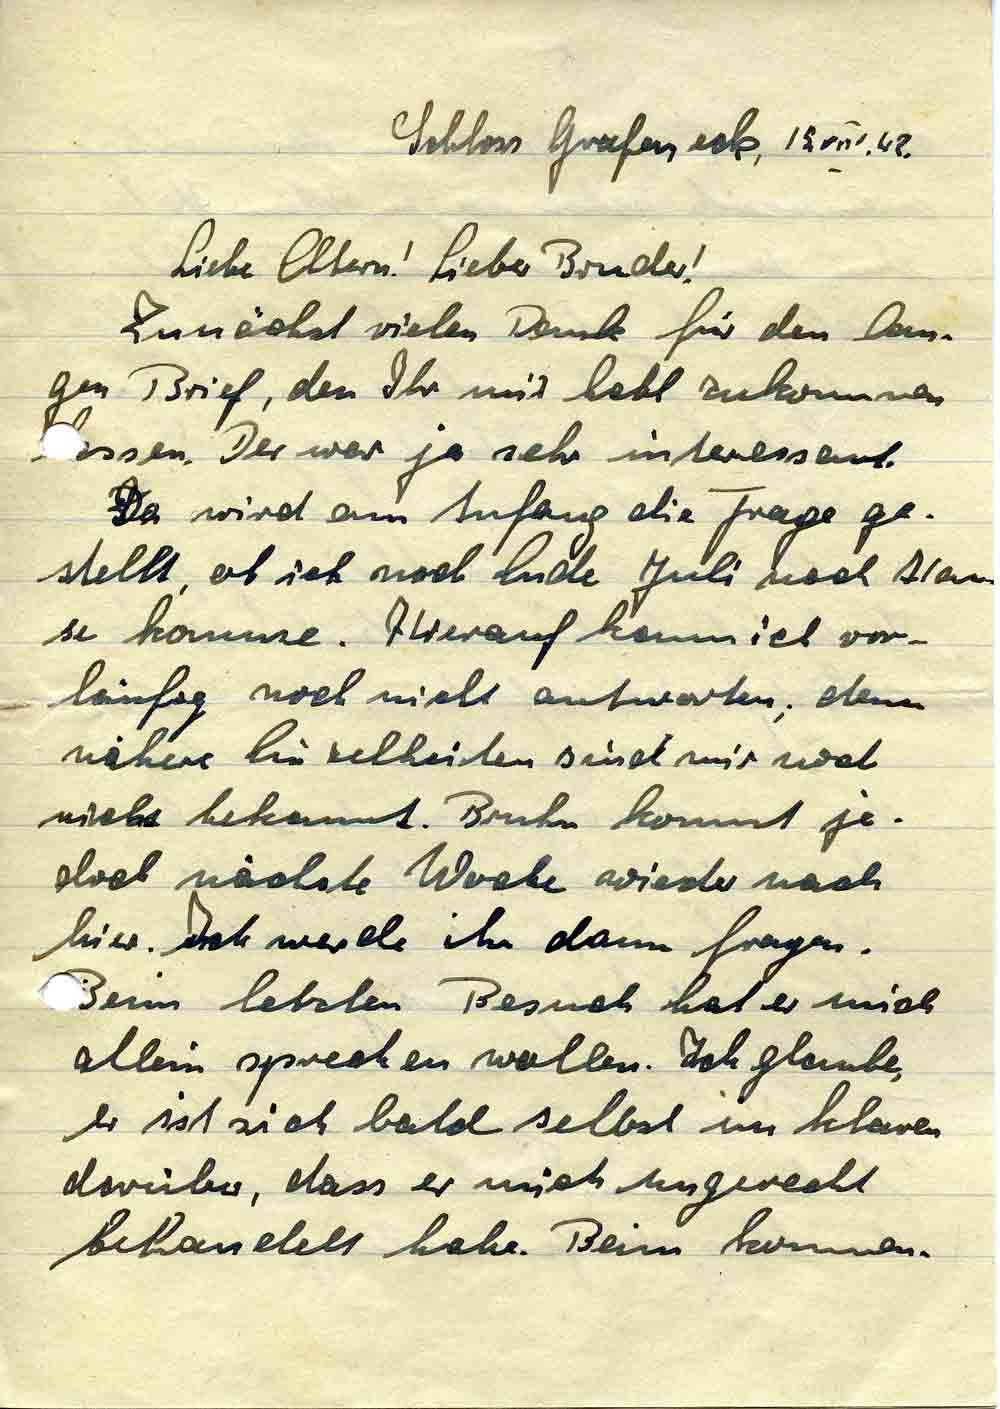 Schloss Grafeneck, 19.VII.42.
Liebe Eltern! Lieber Bruder!
Zunächst vielen Dank für den lan-
gen Brief, den Ihr mir habt zukommen
lassen. Der war ja sehr interessant.
Da wird am Anfang die Frage ge-
stellt, ob ich noch Ende Juli nach Hau
se komme. Hierauf kann ich vor-
läufig noch nicht antworten, denn
nähere Einzelheiten sind mir noch
nicht bekannt. Bruhn kommt je-
doch nächste Woche wieder nach
hier. Ich werde ihn dann fragen.
Beim letzten Besuch hat er mich
allein sprechen wollen. Ich glaube,
er ist sich bald selbst im klaren
darüber, dass er mich ungerecht
behandelt habe. Beim kommen-